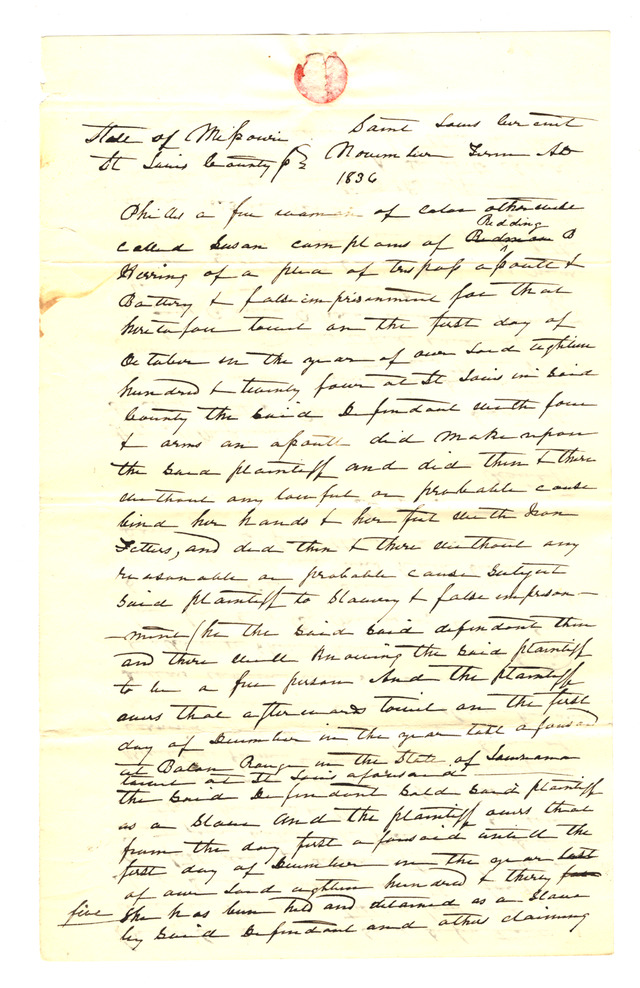 State of Missouri
St Louis County
Saint Louis Circuit
November Term AD
1836
Phillis a free woman of color otherwise
called Susan complains of Redmon Redding B
Herring of a plea of trespass assault &
Battery & false imprisonment for that
heretofore towit on the first day of
October in the year of our Lord eighteen
hundred & twenty four at St Louis in said
County the said Defendant with force
& arms an assault did make upon
the said plaintiff and did then & there
without any lawful or probable cause
bind her hands & her feet with Iron
Fetters, and did then & there without any
reasonable or probable cause Subject
said plaintiff to Slavery & false imprison-
-ment (he the said said defendant then
and there well Knowing the said plaintiff
to be a free person And the plaintiff
avers that afterwards towit on the first
day of December in the year last aforesaid
at Baton Rouge in the State of Louisiana
towit at St Louis aforesaid
the said Defendant Sold said plaintiff
as a Slave and the plaintiff avers that
from the day first aforesaid untill the
first day of December in the year last
of our Lord eighteen hundred & thirty four
five She has been held and detained as a Slave
by said Defendant and others claiming